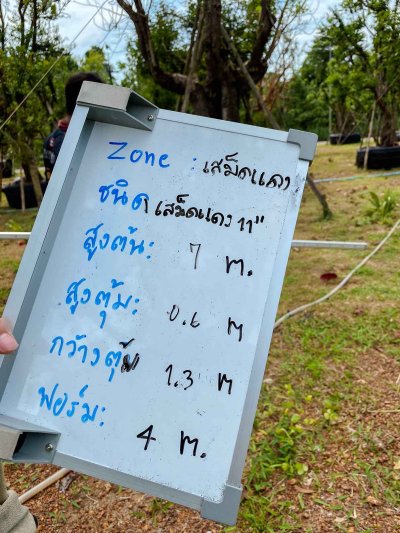 Zone : เสม็ดแดง
ชนิด เสม็ดแดง 11"
สูงต้น: 7 ม.
สูงตุ้ม: 0.6 ม
กว้างตุ้ม 1.3 ม
ฟอร์ม: 4 ม.